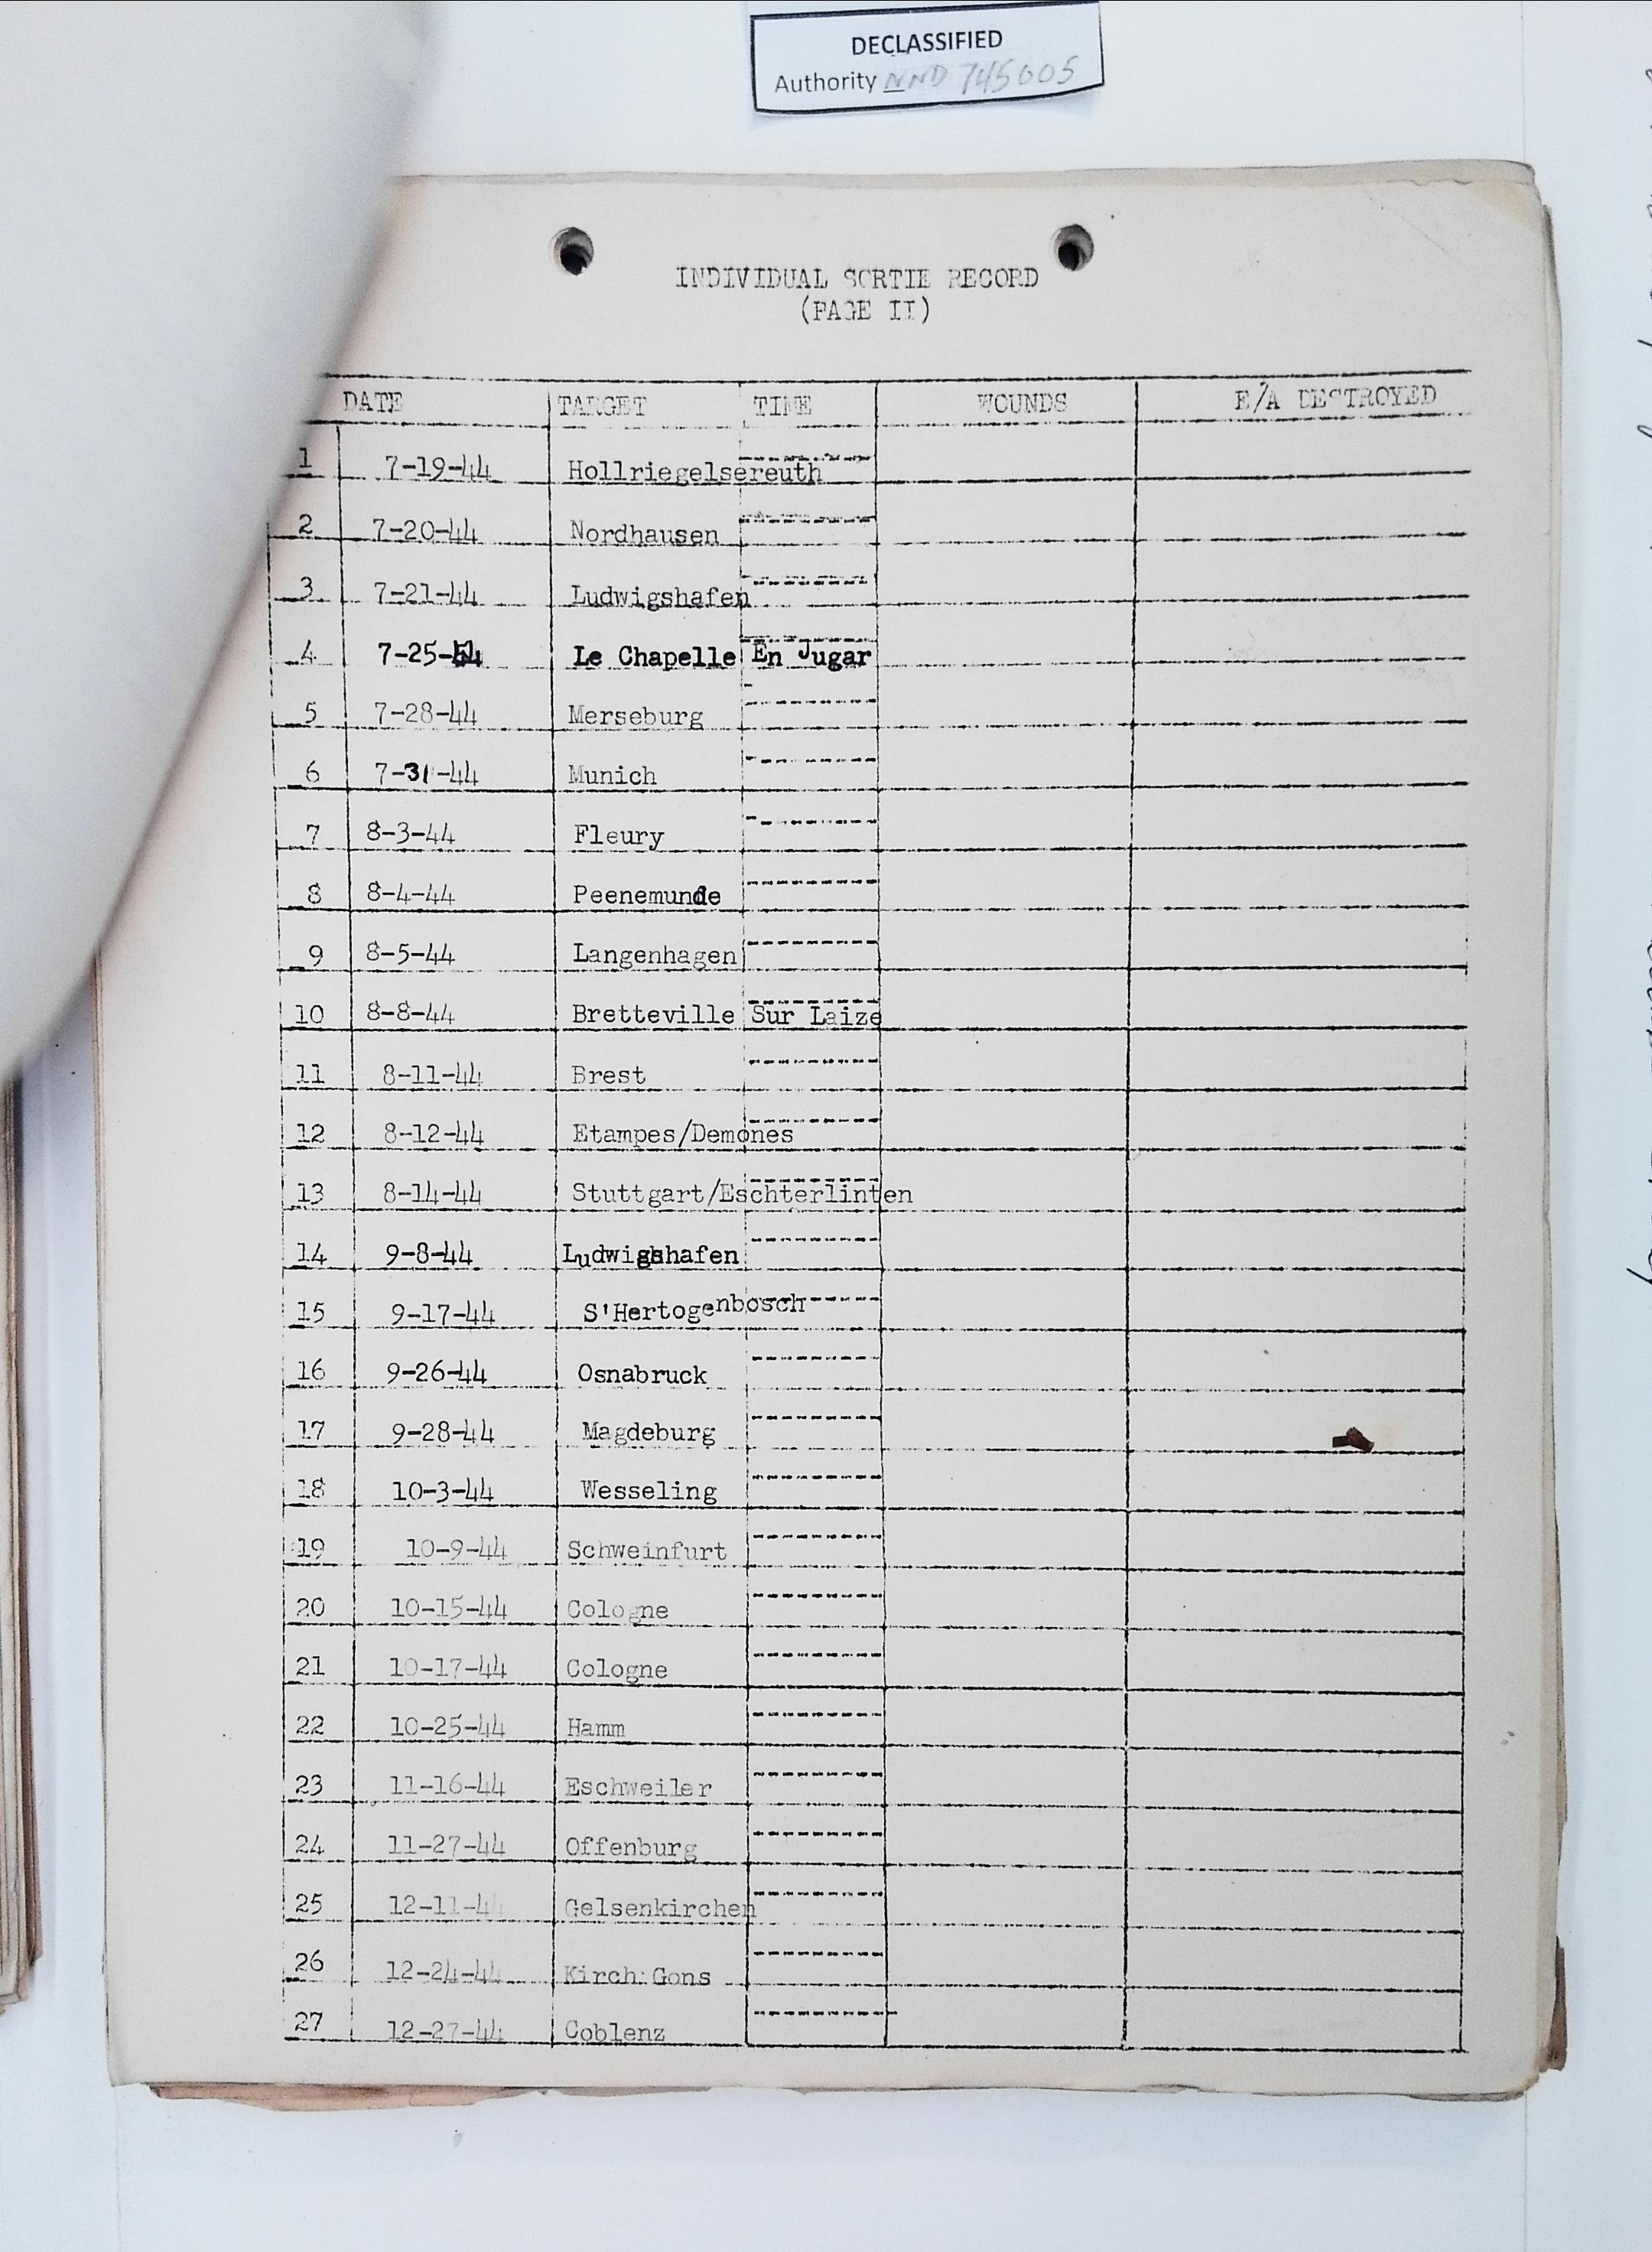 DECLASSIFIED
Authority NND 745005
INDIVIDUAL SORTIE RECORD
(PAGE II)
DATE TARGET TIME WOUNDS E/A DESTROYED
1 7-19-44 Hollriegelsereuth
2 7-20-44 Nordhausen
3 7-21-44 Ludwigshafen
4 7-25-44 Le Chapelle En Jugar
5 7-28-44 Merseburg
6 7-31-44 Munich
7 8-3-44 Fleury
8 8-4-44 Peenemunde
9 8-5-44 Langenhagen
10 8-8-44 Bretteville Sur Laize
11 8-11-44 Brest
12 8-12-44 Etampes/Demones
13 8-14-44 Stuttgart/Eschterlinten
14 9-8-44 Ludwigshafen
15 9-17-44 S'Hertogenbosch
16 9-26-44 Osnabruck
17 9-28-44 Magdeburg
18 10-3-44 Wesseling
19 10-9-44 Schweinfurt
20 10-15-44 Cologne
21 10-17-44 Cologne
22 10-25-44 Hamm
23 11-16-44 Eschweiler
24 11-27-44 Offenburg
25 12-11-44 Gelsenkirchen
26 12-24-44 Kirch Gons
27 12-27-44 Coblenz